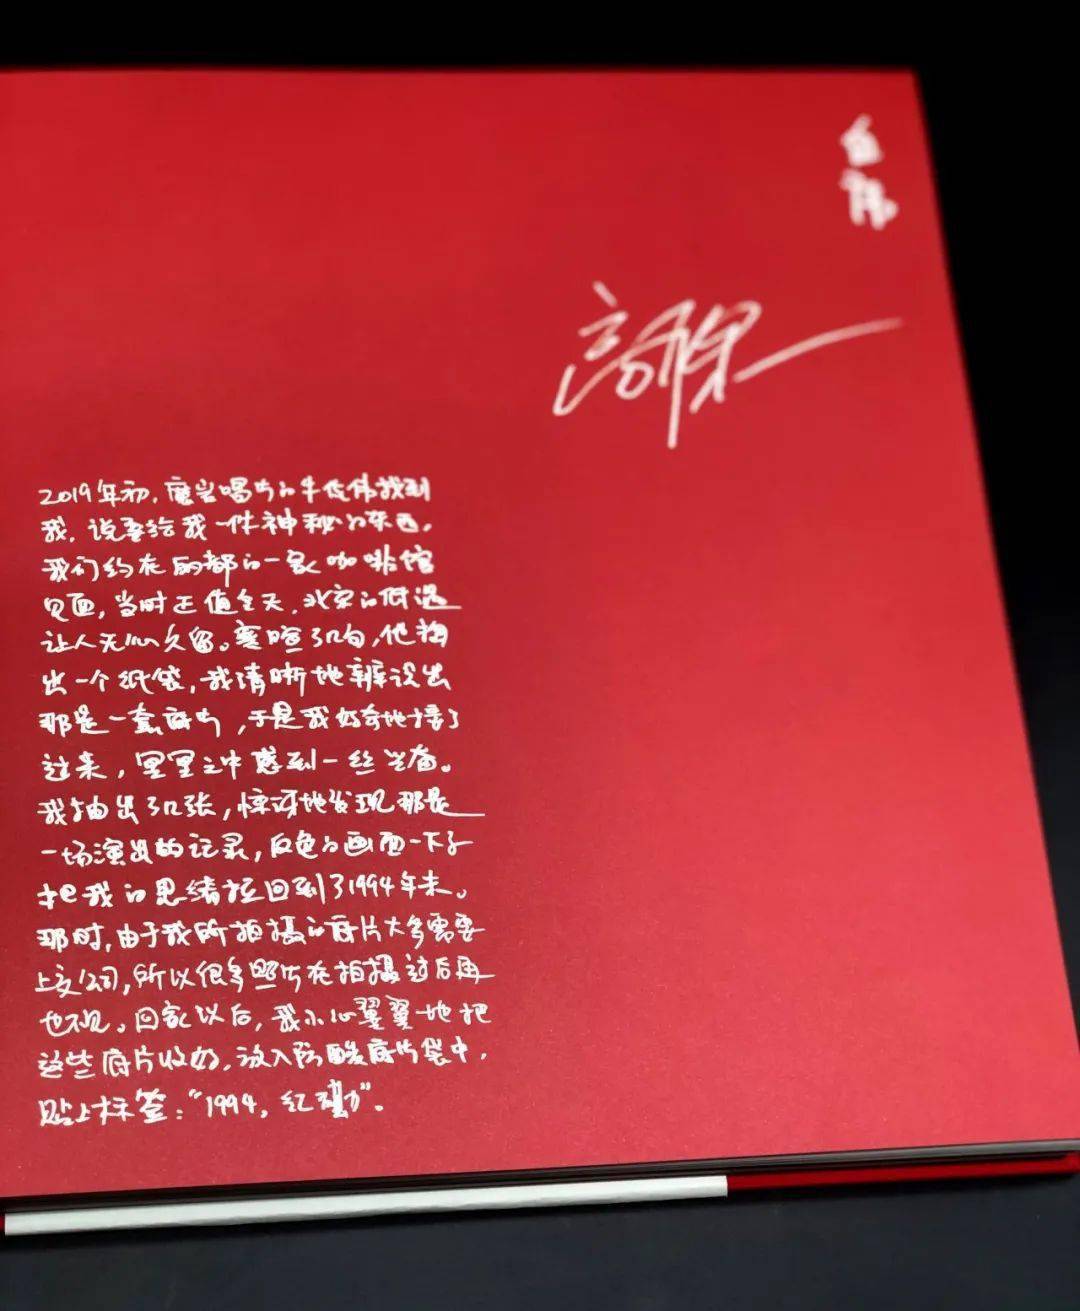 自
序
高原
2019年初，魔岩唱片的牛伟找到
我，说要给我一件神秘的东西。
我们约在丽都的一家咖啡馆
见面，当时正值冬天，北京的低温
让人无心久留。寒暄了几句，他掏
出一个纸袋，我清晰地辨识出
那是一套底片，于是我好奇地接了
过来，冥冥之中感到一丝兴奋。
我抽出了几张，惊讶地发现那是
一场演出的记录，反色的画面一下子
把我的思绪拉回到了1994年末。
那时，由于我所拍摄的底片大多需要
上交公司，所以很多照片在拍摄过后再
也不见。回家以后，我小心翼翼地把
这些底片收好，放入防酸底片袋中，
贴上标签：“1994，红磡”。